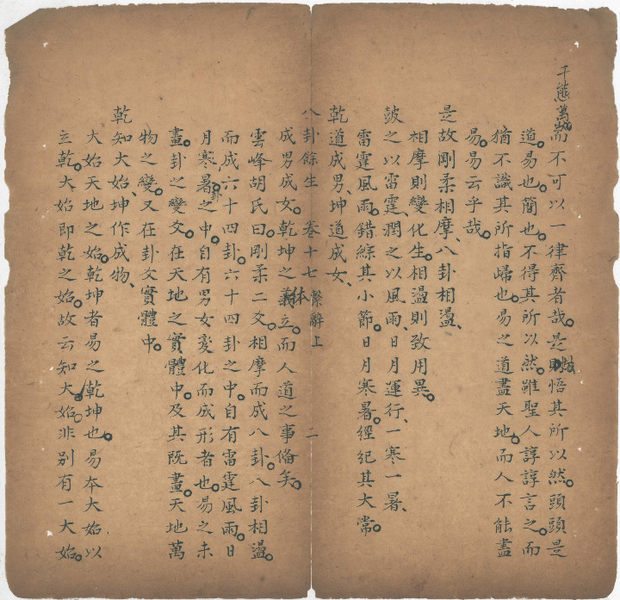 千態萬狀而不可以一律齊者哉是則悟其所以然頭頭是
道易也簡也不得其所以然雖聖人諄諄言之而
猶不識其所指歸也易之道盡天地而人不能盡
易易云乎哉
是故剛柔相摩八卦相盪
相摩則變化生相盪則致用異
鼓之以雷霆潤之以風雨日月運行一寒一暑
雷霆風雨錯綜其小節日月寒暑經紀其大常
乾道成男坤道成女
八卦餘生 卷十七 繫辭上 二
成男成女乾坤之義立而人道之事偹矣
雲峰胡氏曰剛柔二爻相摩而成八卦八卦相盪
而成六十四卦六十四卦之中自有雷霆風雨日
月寒暑卦之中自有男女變化而成形者也易之未
畫卦之變爻在天地之實體中及其既畫天地萬
物之變又在卦爻實體中
乾知大始坤作成物
大始天地之始乾坤者易之乾坤也易本大始以
立乾大始即乾之始故云知大始非别有一大始